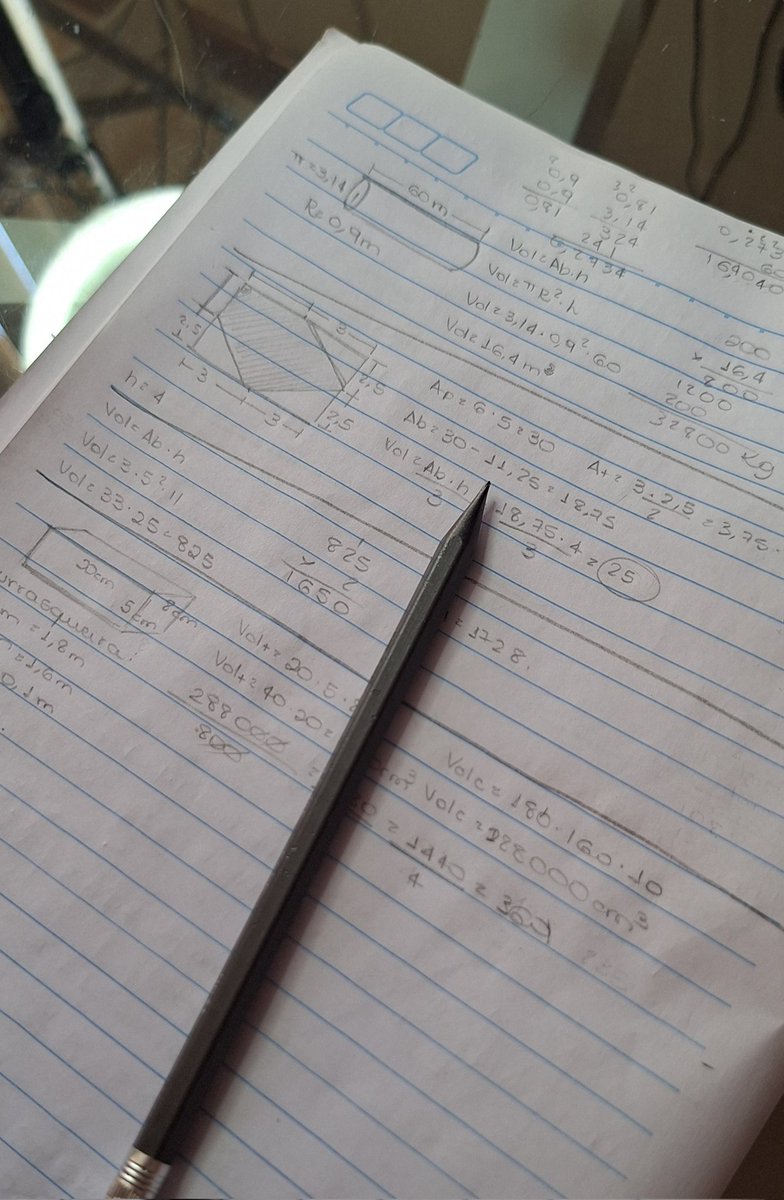 π=3,14
R=0,9m
60m
0,9
0,9
0,81
0,81
3,14
324
241
16,4040
Vol=Ab.h
Vol=πR².h
Vol=3,14.0,9².60
Vol=16,4m³
200
x 16,4
800
1200
200
32800 Kg
3
2,5
2,5
3
3
2,5
h=4
Ap=6.5=30
Ab=30-11,25=18,75
At=3.2,5/2=3,75.
Vol=Ab.h/3
18,75.4/3=25
Vol=Ab.h
Vol=3.5².11
Vol=33.25=825
825
x 2
1650
20cm
5cm
=1728.
urrasqueira:
m=1,8m
=1,6m
0,1m
Vol+=20.5.
Vol+=40.20=
288000
800
cm³
Volc=180.160.10
Volc=288000cm³
=1440/4=360